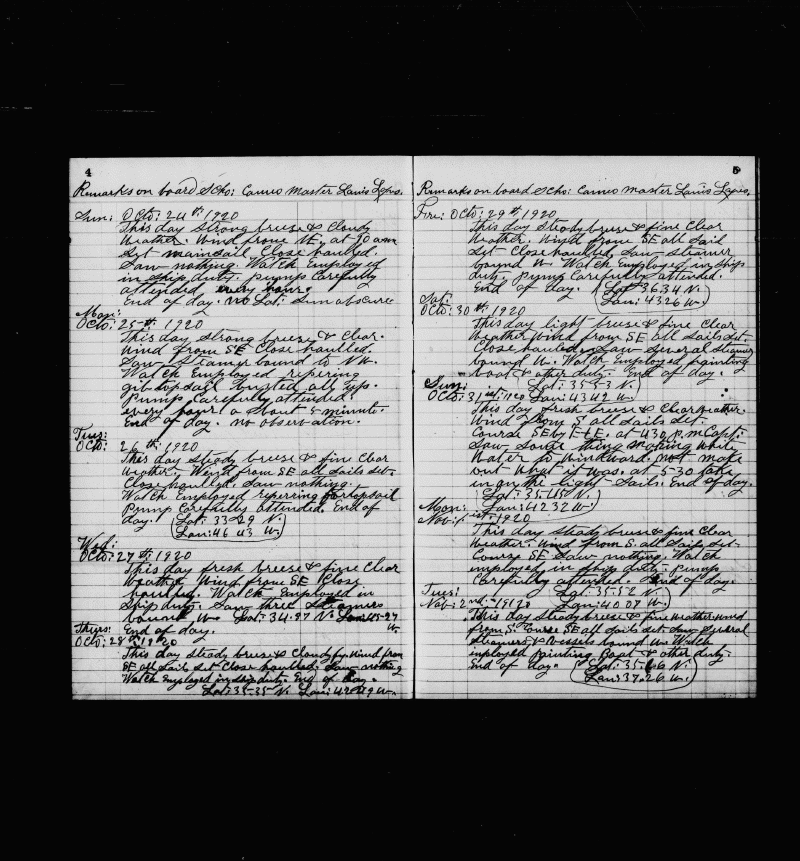 4
Remarks on board Scho: Cameo Master Lauis Lopis.
Sun: Octo: 24th: 1920
This day strong breese & Cloudy
Weather. Wind frome NE, at 10 a.m
Set mainsail, Close haulled.
Saw nothing. Watch Employed
in ship duty. pumps Carefully
attended every hour.
End of day. no Lat: Sun obscure
Mon:
Octo: 25th. 1920
This day strong breese & Clear.
Wind from SE Close haulled.
Saw Steamer bound to NW.
Watch Employed repering
gibtopsail busted all up.
Pump Carefully attended.
every hour a bout 5 minute.
End of day. no observation.
Tues:
Octo: 26th. 1920
This day steady breese & fine Clear
Weather, Wend from SE all sails set.
Close haulled, Saw nothing.
Watch Employed reperring foretopsail
Pump Carefully attended. End of
day. Lat: 33-29 N.
Lau: 46 43 W.
Wed:
Octo: 27th. 1920
This day fresh breese & fine Clear
Weather Wind from SE Close
haulled. Watch Employed in
Ship duty. Saw three Steamers
bound W. Lat: 34.27 N. Lau: 45-27
End of day. W.
Thurs:
Octo: 28th. 1920
This day steady breese & Cloudy Wind from
SE all sails set Close haulled. Saw nothing
Watch Employed in ship duty. End of day.
Lat: 35-35 N. Lau: 42 49 W.
5
Remarks on board Scho: Cameo Master Lauis Lopis.
Fri: Octo: 29th. 1920
This day Steady breese & fine Clear
Weather. Wind frome SE all Sail
Set Close haulled, Saw Steamer
bound W. Watch Employed in ships
duty. Pump Carefully attended.
End of day. Lat 36.34 N.
Lau: 43 26 W.
Sat:
Octo: 30th. 1920
This day light breese & fine Clear
Weather Wind from SE all sails set.
Close haulled, Saw Several Steamer
bound W. Watch Employed painting
boat & other duty. End of day.
Lat: 35-53 N.
Sun:
Octo: 31st. 1920 Lau: 43 42 W.
This day fresh breese & Clear Weather.
Wind from S all sails set.
Course SE by E ½ E. at 430 p.m Capt:
Saw Some thing making White
Water to Windward. not make
out What it was. at 5-30 take
in gn the light Sails. End of day.
Lat: 35.45 N.
Mon: Lau: 42 32 W.
Nov: 1st. 1920
This day Steady breese & fine Clear
Weather. Wind from S. all Sails Set.
Course SE Saw nothing. Watch
employed in Ship duty. Pump
Carefully attended. End of day.
Lat: 35.52 N.
Tues: Lau: 40 07 W.
Nov: 2nd. 1920
This day Steady breese & fine weather. Wind
from S. Course SE all Sails set. Saw Several
Steamers & Vessels bound W. Watch
imployed Painting Boat & other duty.
End of day. Lat: 35-46 N.
Lau: 37.26 W.